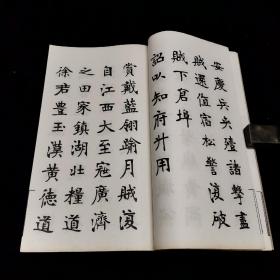 安慶兵久殪諸擊盡
賊還值宿松警復破
賊下倉埠
詔以知府升用
賞戴藍翎踰月賊復
自江西大至寇廣濟
之田家鎮湖北糧道
徐君豊玉漢黃德道